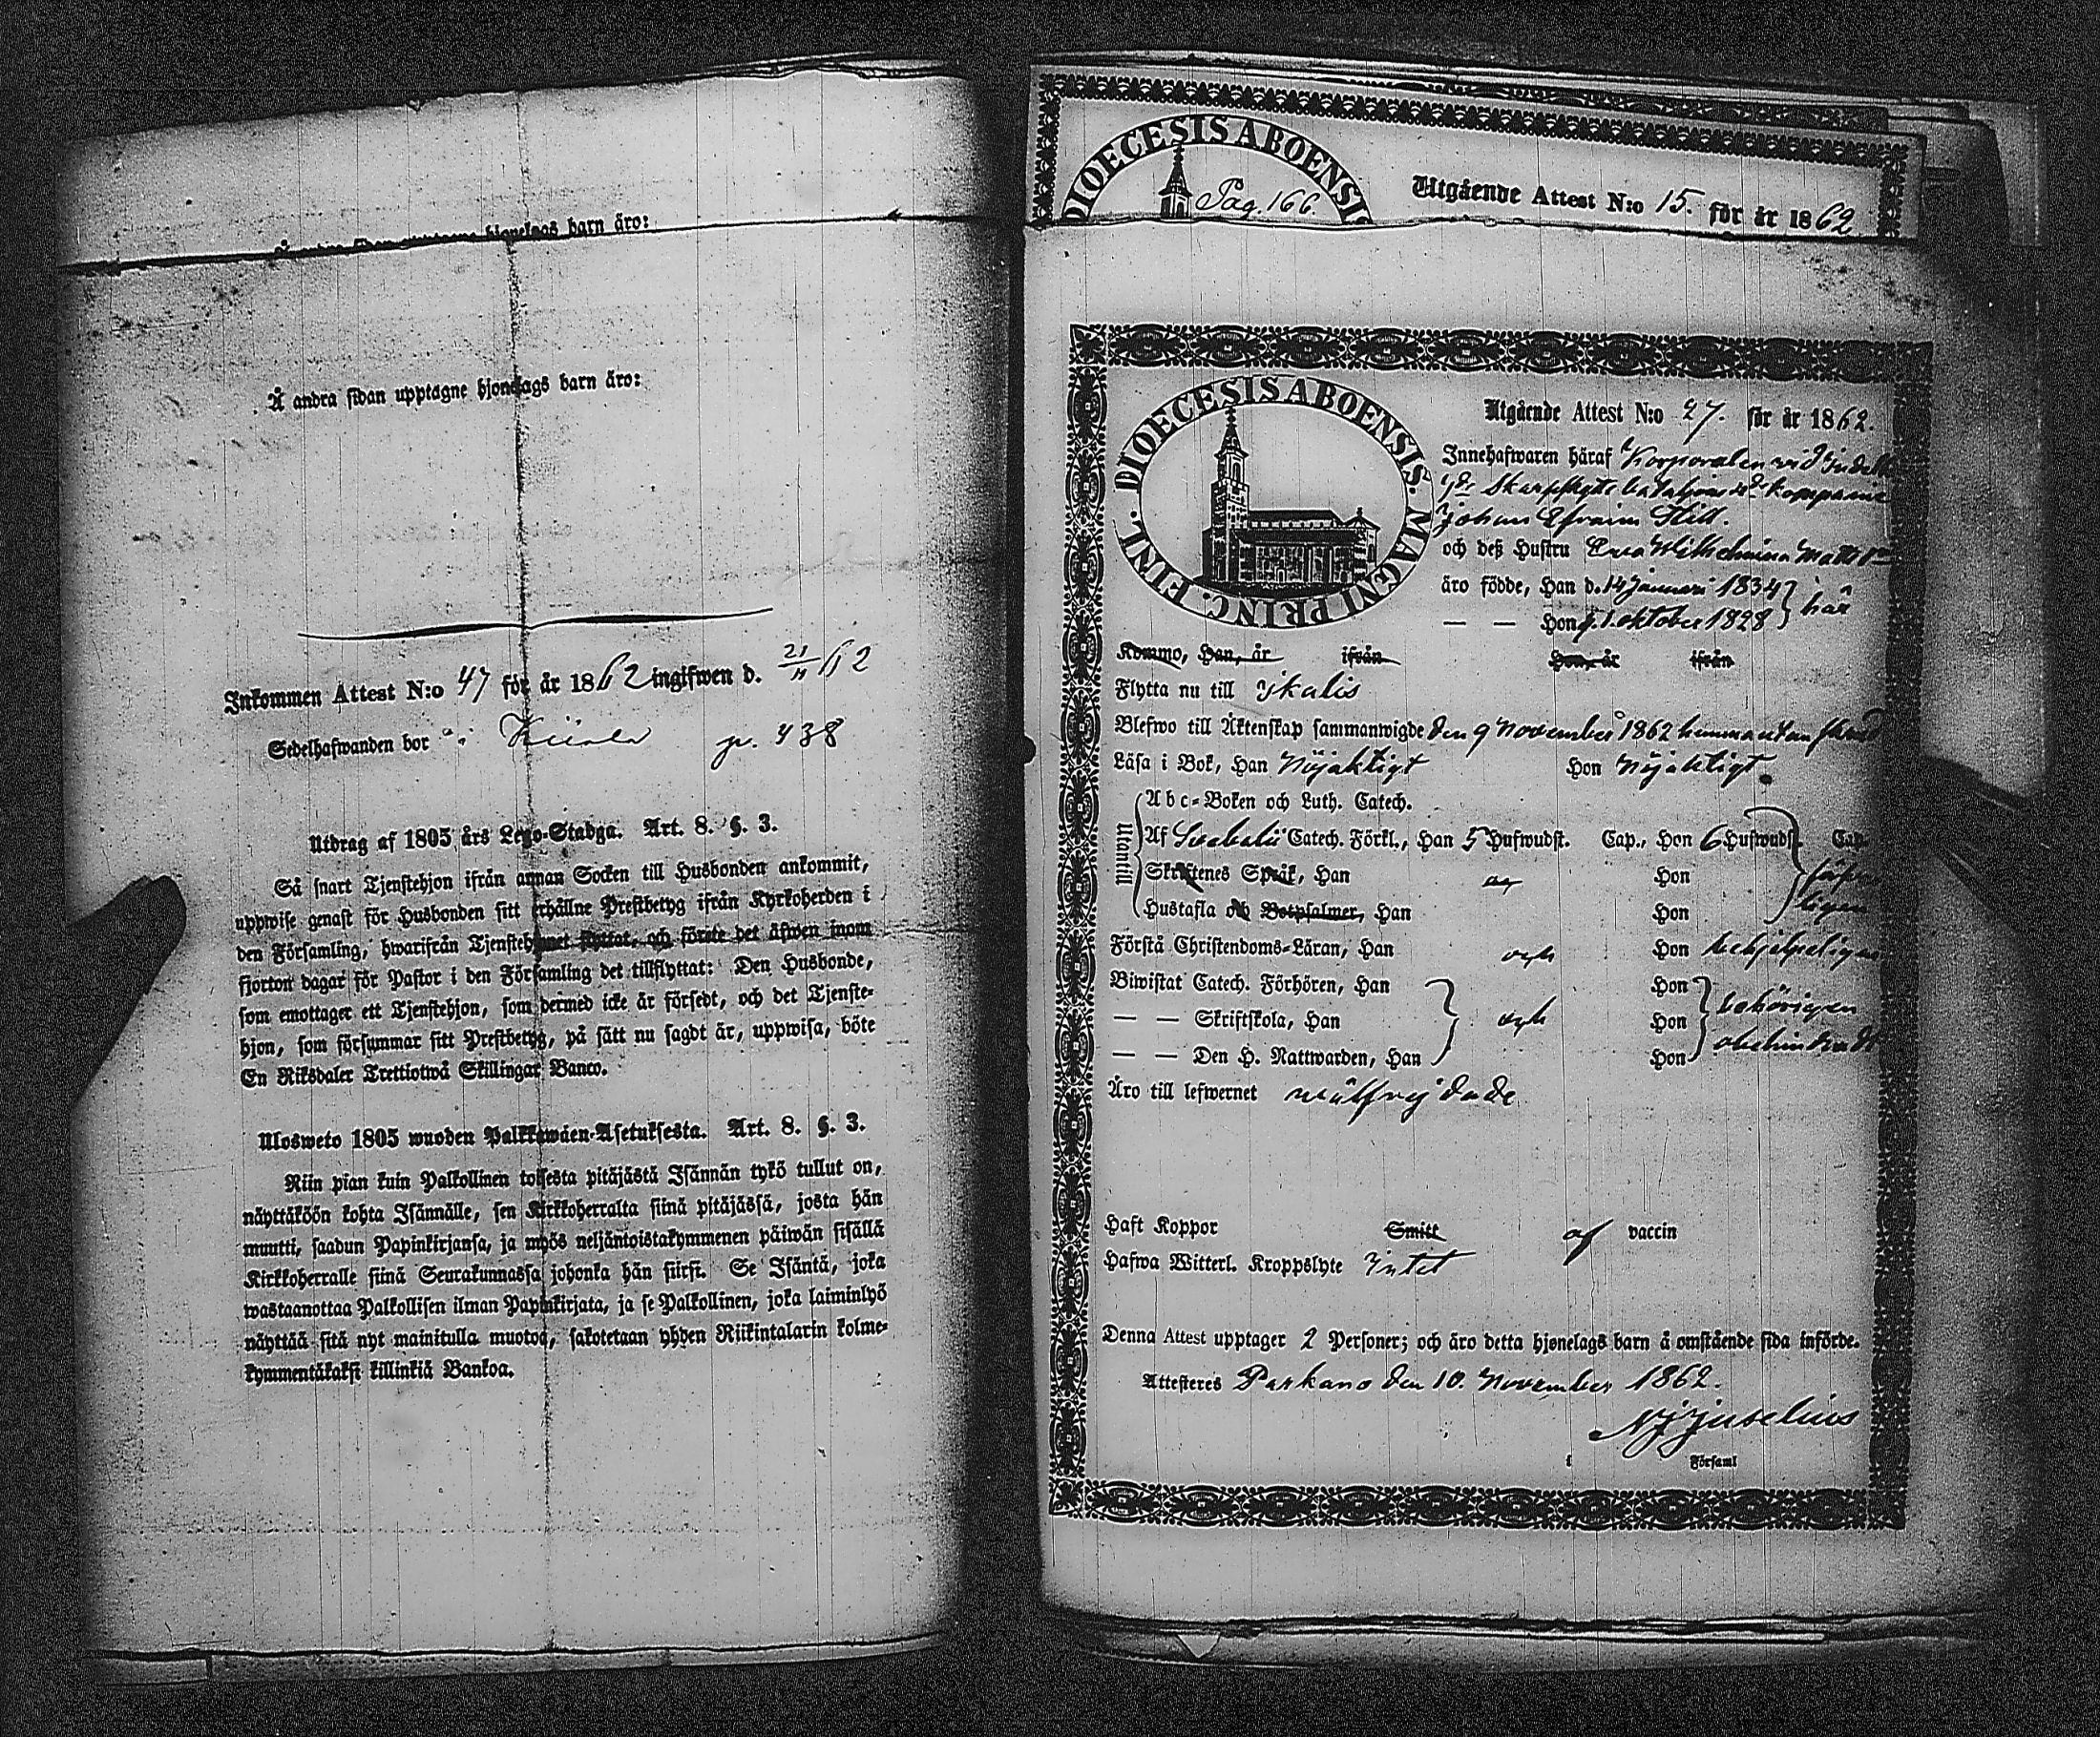 barn äro:
Å andra sidan upptagne hjonelags barn äro:
Inkommen Attest N:o 47 för år 1862 ingifwen d. 21/11 62
Sedelhafwanden bor i p. 438
Utdrag af 1805 års Lego-Stadga. Art. 8. §. 3.
Så snart Tjenstehjon ifrån annan Socken till Husbonden ankommit,
uppwise genast för Husbonden sitt erhållne Prestbetyg ifrån Kyrkoherden i
den Församling, hwarifrån Tjenstehjonet flyttat, och förete det äfwen inom
fjorton dagar för Pastor i den Församling det tillflyttat: Den Husbonde,
som emottager ett Tjenstehjon, som dermed icke är försedt, och det Tjenste-
hjon, som försummar sitt Prestbetyg, på sätt nu sagdt är, uppwisa, böte
En Riksdaler Trettiotwå Skillingar Banco.
Ulosweto 1805 wuoden Palkkawäen-Asetuksesta. Art. 8. §. 3.
Niin pian kuin Palkollinen toisesta pitäjästä Isännän tykö tullut on,
näyttäköön kohta Isännälle, sen Kirkkoherralta siinä pitäjässä, josta hän
muutti, saadun Papinkirjansa, ja myös neljäntoistakymmenen päiwän sisällä
Kirkkoherralle siinä Seurakunnassa johonka hän siirsi. Se Isäntä, joka
wastaanottaa Palkollisen ilman Papinkirjata, ja se Palkollinen, joka laiminlyö
näyttää sitä nyt mainitulla muotoa, sakotetaan yhden Riikintalarin kolme-
kymmentäkaksi killinkiä Bankoa.
DIOECESIS ABOENSIS
Pag. 166.
Utgående Attest N:o 15. för år 1862
DIOECESIS ABOENSIS. MAGNI PRINC. FINL.
Utgående Attest N:o 27. för år 1862.
Innehafwaren häraf Korporalen vid Indelta
Skarpskytte bataljons kompanie
Johan Efraim
och deß Hustru Wilhelmina Matts
äro födde, Han d. 14 Januari 1834 } här
— — Hon d. 1 oktober 1828
Kommo, Han, år ifrån Hon, år ifrån
Flytta nu till Ikalis
Blefwo till Äktenskap sammanwigde den 9 November 1862
Läsa i Bok, Han Nöjaktigt Hon Nöjaktigt.
Abc-Boken och Luth. Catech.
Utantill Af Svebelii Catech. Förkl., Han 5 Hufwudst. Cap., Hon 6 Hufwudst. Cap.
Skriftenes Språk, Han och Hon
Hustafla och Botpsalmer, Han Hon
Förstå Christendoms-Läran, Han och Hon behjelpeligen
Biwistat Catech. Förhören, Han Hon
— — Skriftskola, Han och Hon behörigen
— — Den H. Nattwarden, Han Hon obehindradt
Äro till lefwernet wälfrejdade
Haft Koppor Smitt af vaccin
Hafwa Witterl. Kroppslyte Intet
Denna Attest upptager 2 Personer; och äro detta hjonelags barn å omstående sida införde.
Attesteres Parkano den 10. November 1862.
Juselius
Församl